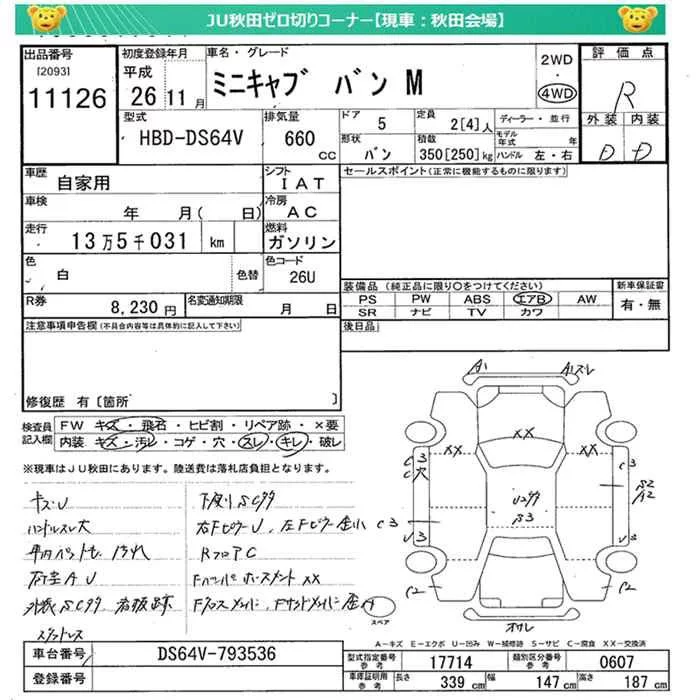 JU秋田ゼロ切りコーナー【現車：秋田会場】
出品番号
[2093]
11126
初度登録年月
平成
26 11 月
車名・グレード
ミニキャブ バン M
2WD
4WD
評価点
R
外装 内装
D D
型式
HBD-DS64V
排気量
660 CC
ドア 5
形状 バン
定員 2[4]人
積載 350[250]kg
ディーラー・並行
モデル年式 年
ハンドル 左・右
車歴
自家用
シフト
IAT
セールスポイント(正常に機能するものに限ります)
車検
年 月( 日)
冷房
AC
走行
13万5千031 km
燃料
ガソリン
色
白
色替
色コード
26U
装備品 (純正品に限り○をつけてください)
PS PW ABS エアB AW
SR ナビ TV カワ
新車保証書
有・無
R券
8,230 円
名変通知期限
月 日
後日品
注意事項申告欄(不具合内容等は具体的に記入して下さい)
修復歴 有〔箇所 〕
検査員記入欄
FW キズ・飛石・ヒビ割・リペア跡・×要
内装 キズ・汚レ・コゲ・穴・スレ・キレ・破レ
※現車はJU秋田にあります。陸送費は落札店負担となります。
キズU
ハンドルスレ大
車内ペットセ 汚れ
荷室AU
外装SCサタ 看板跡
スタットレス
下廻りSCサタ
右FピラーU、左Fピラー歪小
RフロアC
Fバンパー ホースメント XX
Fクロスメンバ、Fサイドメンバ歪A
A1
A1スレ
XX
XX
XX
C3
C穴
C3
S2
A2
Uコサタ
S3
C3
U3
U3
P2
P2
オサレ
スペア
A－キズ E－エクボ U－凹み W－補修跡 S－サビ C－腐食 XX－交換済
車台番号
DS64V-793536
登録番号
型式指定番号参考
17714
類別区分番号参考
0607
車庫証明用参考
長さ 339 cm
幅 147 cm
高さ 187 cm